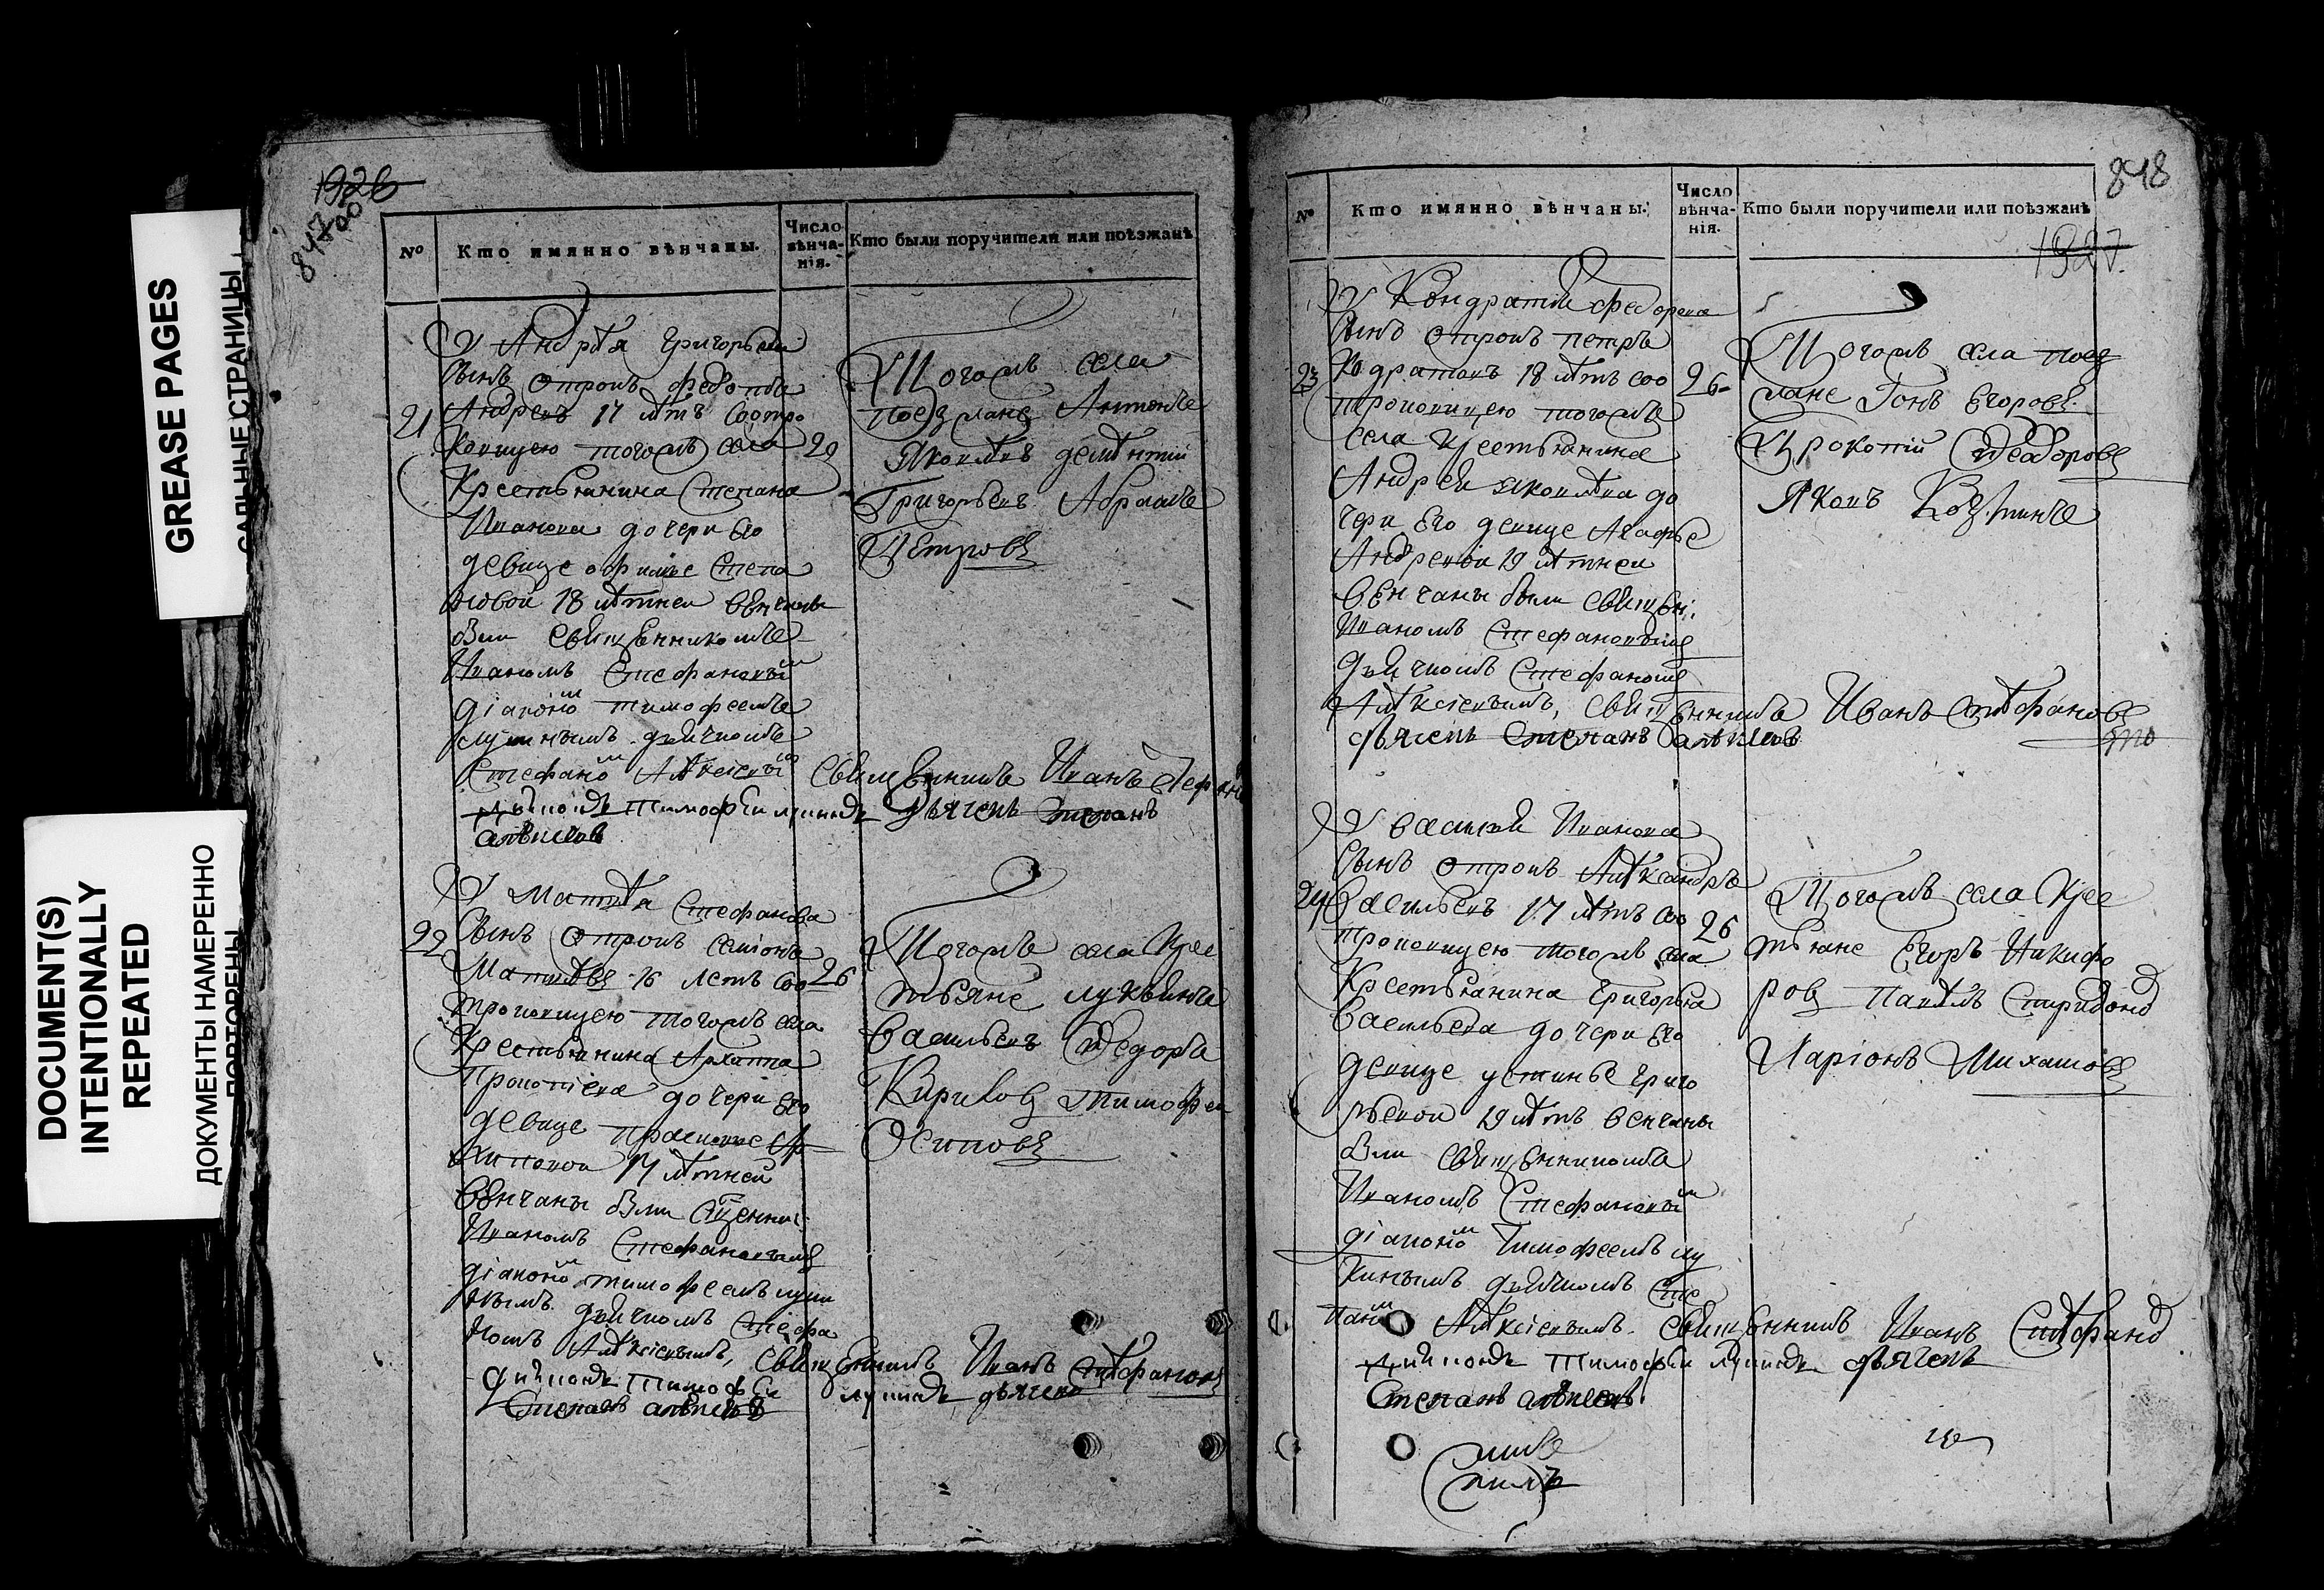 GREASE PAGES
САЛЬНЫЕ СТРАНИЦЫ
DOCUMENT(S)
INTENTIONALLY
REPEATED
ДОКУМЕНТЫ НАМЕРЕННО
ПОВТОРЕНЫ
1926
847
№
Кто имянно вѣнчаны.
Число вѣнча-нія.
Кто были поручители или поѣзжанѣ
У Андрѣя Григорьева
сынъ отрокъ федотъ
21 Андреевъ 17 лѣтъ соотро
ковицею тогожъ села 20
Крестьянина Степана
Иванова дочери Его
девице офимье Степа
новой 18 лѣтней венчаны
были священникомъ
Иваномъ Стефановымъ
діакономъ тимофеемъ
лукинымъ дьячкомъ
Стефаномъ Алѣксіевымъ
Тогожъ села
поезжане Антонъ
Яковлѣвъ дементий
Григорьевъ Абрамъ
Петровъ
Священникъ Иванъ Стефановъ
діаконъ Тимофѣй лукинъ дьячекъ Степанъ
алѣксѣевъ
У Матвѣя Стефанова
22 сынъ отрокъ семіонъ
Матвѣевъ 16 летъ соо 26
троковицею тогожъ села
Крестьянина Архиппа
Прокопіева дочери Его
девице прасковье Ар
хиповой 17 лѣтней
венчаны были
Иваномъ Стефановымъ
діакономъ тимофеемъ луки
нымъ дьячкомъ Стефа
номъ Алѣксіевымъ,
Тогожъ села Крес
тьяне лукьянъ
Васильевъ Федоръ
Кириловъ тимофей
Осиповъ
Священникъ Иванъ Стѣфановъ
діаконъ Тимофѣй лукинъ дьячекъ
Степанъ алѣксѣевъ
848
1927.
№
Кто имянно вѣнчаны:
Число вѣнча-нія.
Кто были поручители или поѣзжанѣ
У Кондратия федорова
сынъ отрокъ петръ
23 Кодратовъ 18 лѣтъ соо 26
троковицею тогожъ
села Крестьянина
Андрея яковлѣва до
чери Его девице Агафье
Андревой 19 лѣтней
венчаны были священ:
Иваномъ Стефановымъ
дьячкомъ Стефаномъ
Алѣксіевымъ,
Тогожъ села поез
жане Іонъ Егоровъ
Прокопій Феодоровъ
Яковъ Козминъ
Священникъ Иванъ Стѣфановъ
дьячекъ Степанъ алѣксѣевъ
У василей Иванова
сынъ отрокъ Алѣксандръ
24 Васильевъ 17 лѣтъ соо 26
троковицею тогожъ села
Крестьянина Григорья
Васильева дочери Его
девице устинье Григо
рьевой 19 лѣтъ венчаны
были священникомъ
Иваномъ Стефановымъ
діакономъ Тимофеемъ лу
кинымъ дьячкомъ Сте
паномъ Алѣксіевымъ.
Тогожъ села Крес
тьяне Егоръ Никифо
ровъ Павѣлъ Спиридоновъ
Ларіонъ Михайловъ
Священникъ Иванъ Стѣфановъ
діаконъ Тимофѣй лукинъ дьячекъ
Степанъ алѣксѣевъ